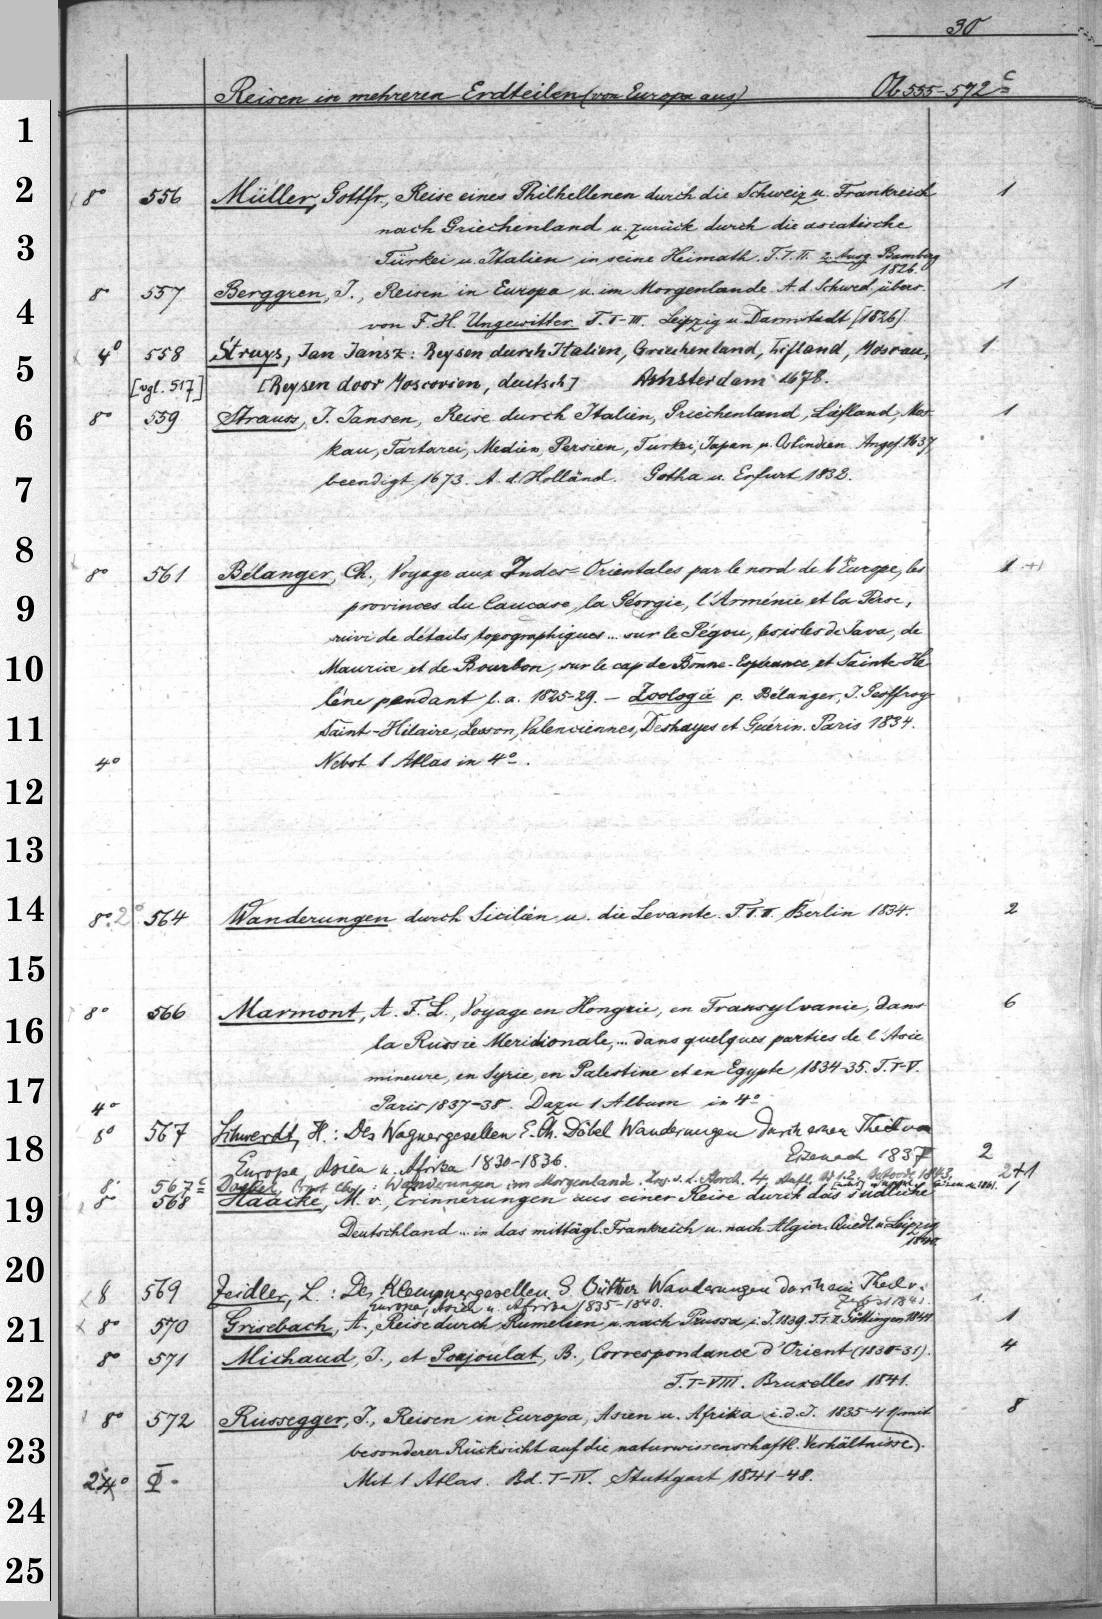 30
Reisen in mehreren Erdteilen (von Europa aus) Ob 555-572 c
1
2 8° 556 Müller, Gottfr., Reise eines Philhellenen durch die Schweiz u. Frankreich 1
nach Griechenland u. zurück durch die asiatische
3 Türkei u. Italien in seine Heimath. T. I. II. 2. Ausg. Bamberg
1826.
8° 557 Berggren, J., Reisen in Europa u. im Morgenlande. A. d. Schwed. übers. 1
4 von F. H. Ungewitter. T. I-III. Leipzig u. Darmstadt [1826]
4° 558 Struys, Jan Jansz: Reysen durch Italien, Griechenland, Lifland, Moscau, 1
5 [vgl. 517] [Reysen door Moscovien, deutsch] Amsterdam 1678.
6 8° 559 Strausz, J. Jansen, Reise durch Italien, Griechenland, Liefland, Mos- 1
kau, Tartarei, Medien, Persien, Türkei, Japan u. Ostindien. Angef. 1637,
7 beendigt 1673. A. d. Holländ. Gotha u. Erfurt 1832.
8 8° 561 Bélanger, Ch., Voyage aux Indes-Orientales par le nord de l'Europe, les 1
9 provinces du Caucase, la Géorgie, l'Arménie et la Perse,
suivi de détails topographiques... sur le Pégou, les isles de Java, de
10 Maurice et de Bourbon, sur le cap de Bonne-Espérance et Sainte-Hé
lène pendant l. a. 1825-29. — Zoologie p. Bélanger, I. Geoffroy-
11 Saint-Hilaire, Lesson, Valenciennes, Deshayes et Guérin. Paris 1834.
4° Nebst 1 Atlas in 4°.
12
13
14 8° 2° 564 Wanderungen durch Sicilien u. die Levante. T. I. II. Berlin 1834. 2
15
8° 566 Marmont, A. F. L., Voyage en Hongrie, en Transylvanie, dans 6
16 la Russie Meridionale,... dans quelques parties de l'Asie
mineure, en Syrie, en Palestine et en Egypte, 1834-35. T. I-V.
17 4° Paris 1837-38. Dazu 1 Album in 4°
8° 567 Schwerdt, H.: Des Wagnergesellen E. Ch. Döbel Wanderungen durch einen Theil von
18 Europa, Asien u. Afrika 1830-1836. Eisenach 1837 2
8° 567 c : Wanderungen im Morgenland. 4. Aufl. 2+1
19 8° 568 Haacke, M. v., Erinnerungen aus einer Reise durch das südliche 1
Deutschland... in das mittägl. Frankreich u. nach Algier. Quedl. u. Leipzig
1840.
20 8 569 Zeidler, L.: Des Klempnergesellen Wanderungen durch ein Theil v. 1
Europa, Asien u. Afrika 1835-1840. 1841.
21 8° 570 Grisebach, A., Reise durch Rumelien u. nach Brussa i. J. 1839. T. I. II. Göttingen 1841 1
8° 571 Michaud, J., et Poujoulat, B., Correspondance d'Orient (1830-31). 4
22 T. I-VIII. Bruxelles 1841.
8° 572 Russegger, J., Reisen in Europa, Asien u. Afrika i. d. J. 1835-41 (mit 8
23 besonderer Rücksicht auf die naturwissenschaftl. Verhältnisse).
2° 4° Φ Mit 1 Atlas. Bd. I-IV. Stuttgart 1841-48.
24
25